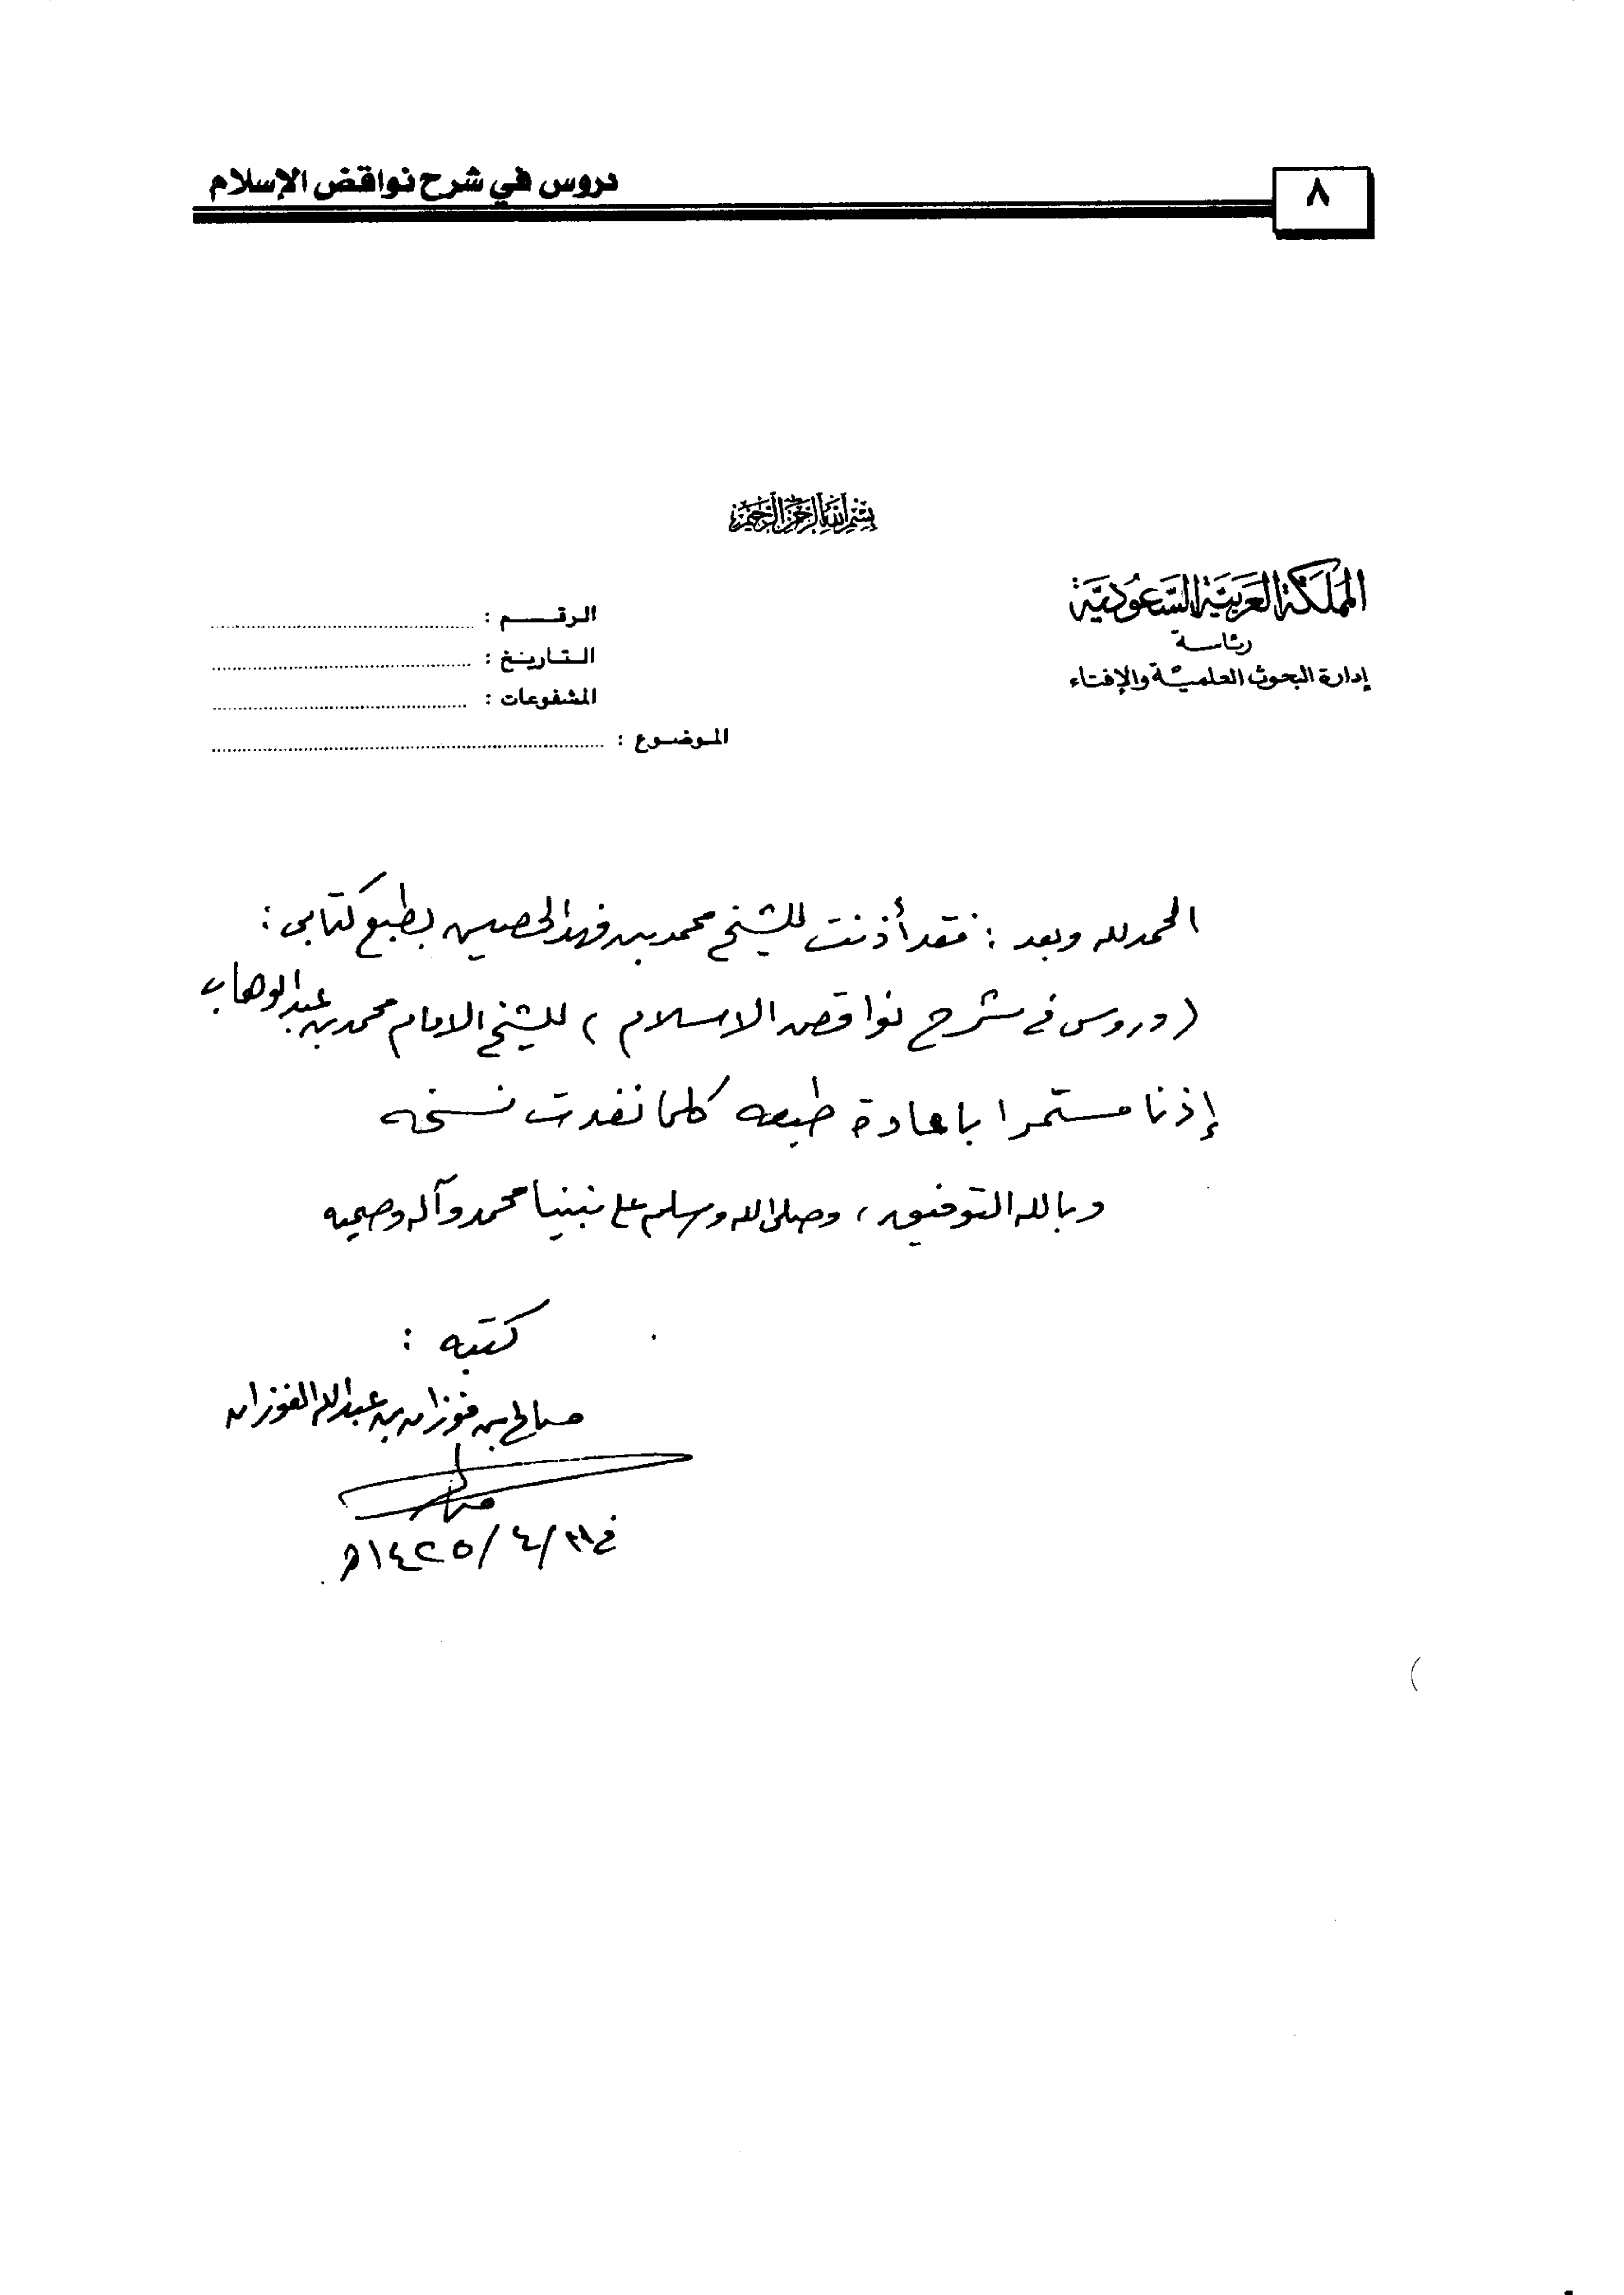 دروس في شرح نواقض الإسلام
٨
بسم الله الرحمن الرحيم
المملكة العربية السعودية
رئاسة
إدارة البحوث العلمية والإفتاء
الرقم :
التاريخ :
المشفوعات :
الموضوع :
الحمد لله وبعد : فقد أذنت للشيخ محمد بن فهد الحصين بطبع كتابي :
( دروس في شرح نواقض الاسلام ) للشيخ الامام محمد بن عبد الوهاب
إذنا مستمرا باعادة طبعه كلما نفدت نسخه
وبالله التوفيق ، وصلى الله وسلم على نبينا محمد وآله وصحبه
كتبه :
صالح بن فوزان بن عبد الله الفوزان
في /٤/١٤٢٥هـ